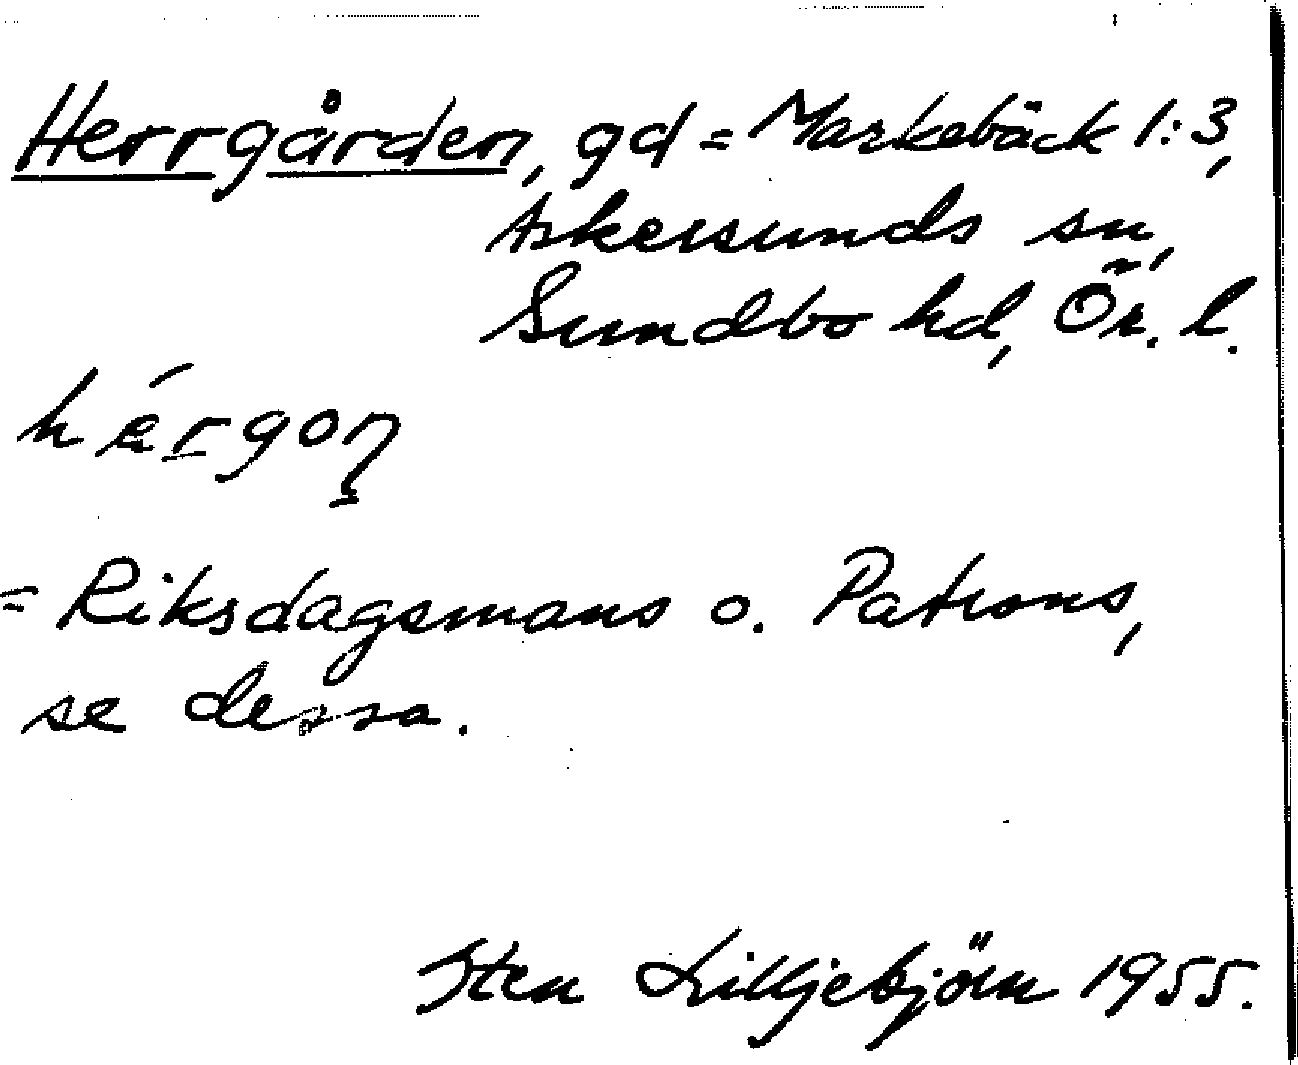 Herrgården, gd = Markebäck 1:3,
Askersunds sn,
Sundbo hd, Ör. l.
hérgoη̥
= Riksdagsmans o. Patrons,
se dessa.
Sten Lilljebjörn 1955.